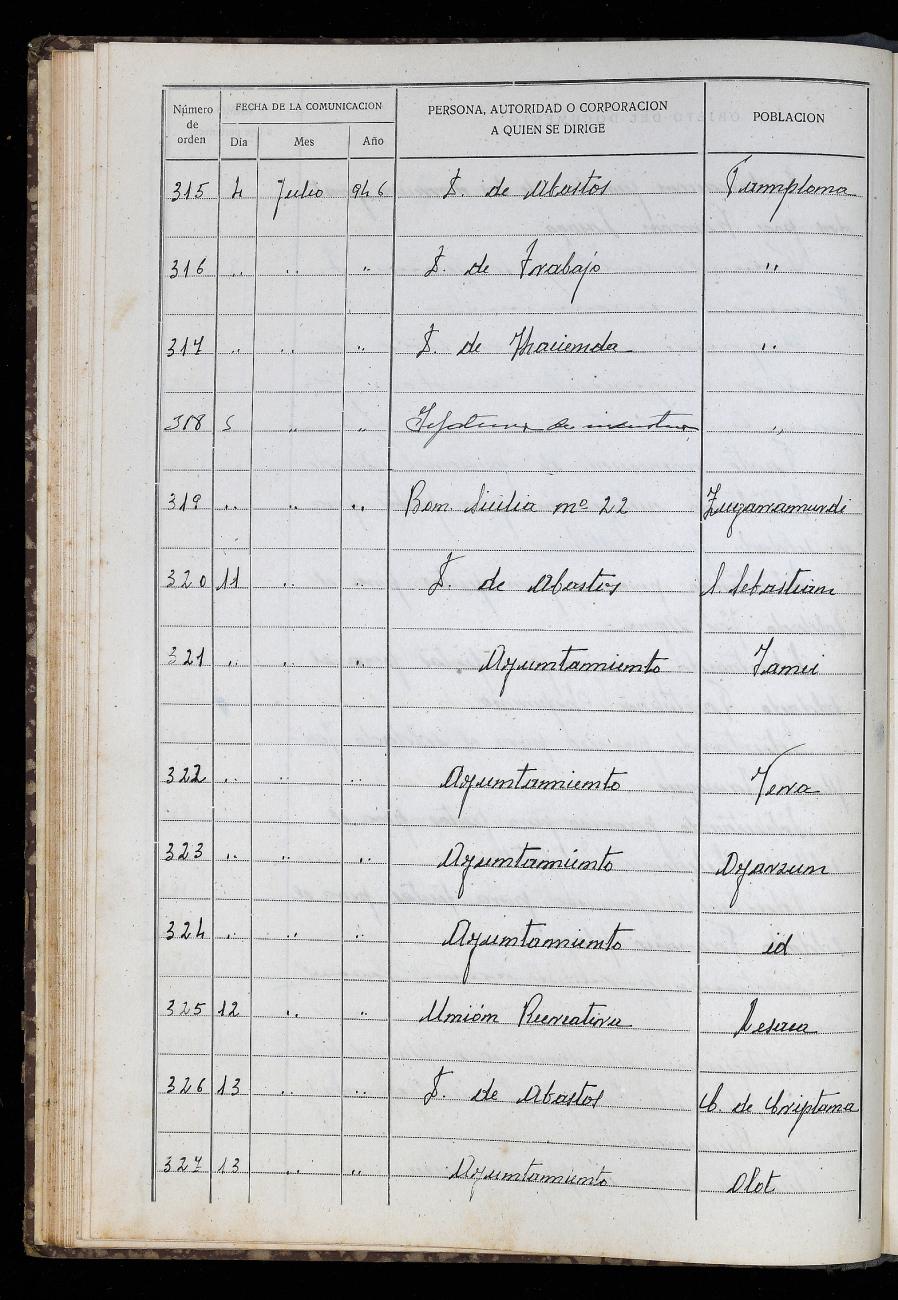 Número de orden FECHA DE LA COMUNICACION PERSONA, AUTORIDAD O CORPORACION A QUIEN SE DIRIGE POBLACION
Dia Mes Año
315 4 Julio 946 D. de Abastos Pamplona
316 " " " D. de Trabajo "
317 " " " D. de Hacienda "
318 5 " " de "
319 " " " Bon. Sicilia nº 22 Zugarramurdi
320 11 " " D. de Abastos S. Sebastian
321 " " " Ayuntamiento Yanci
322 " " " Ayuntamiento Vera
323 " " " Ayuntamiento Oyarzun
324 " " " Ayuntamiento id
325 12 " " Unión Recreativa Lesaca
326 13 " " D. de Abastos C. de Criptana
327 13 " " Ayuntamiento Olot